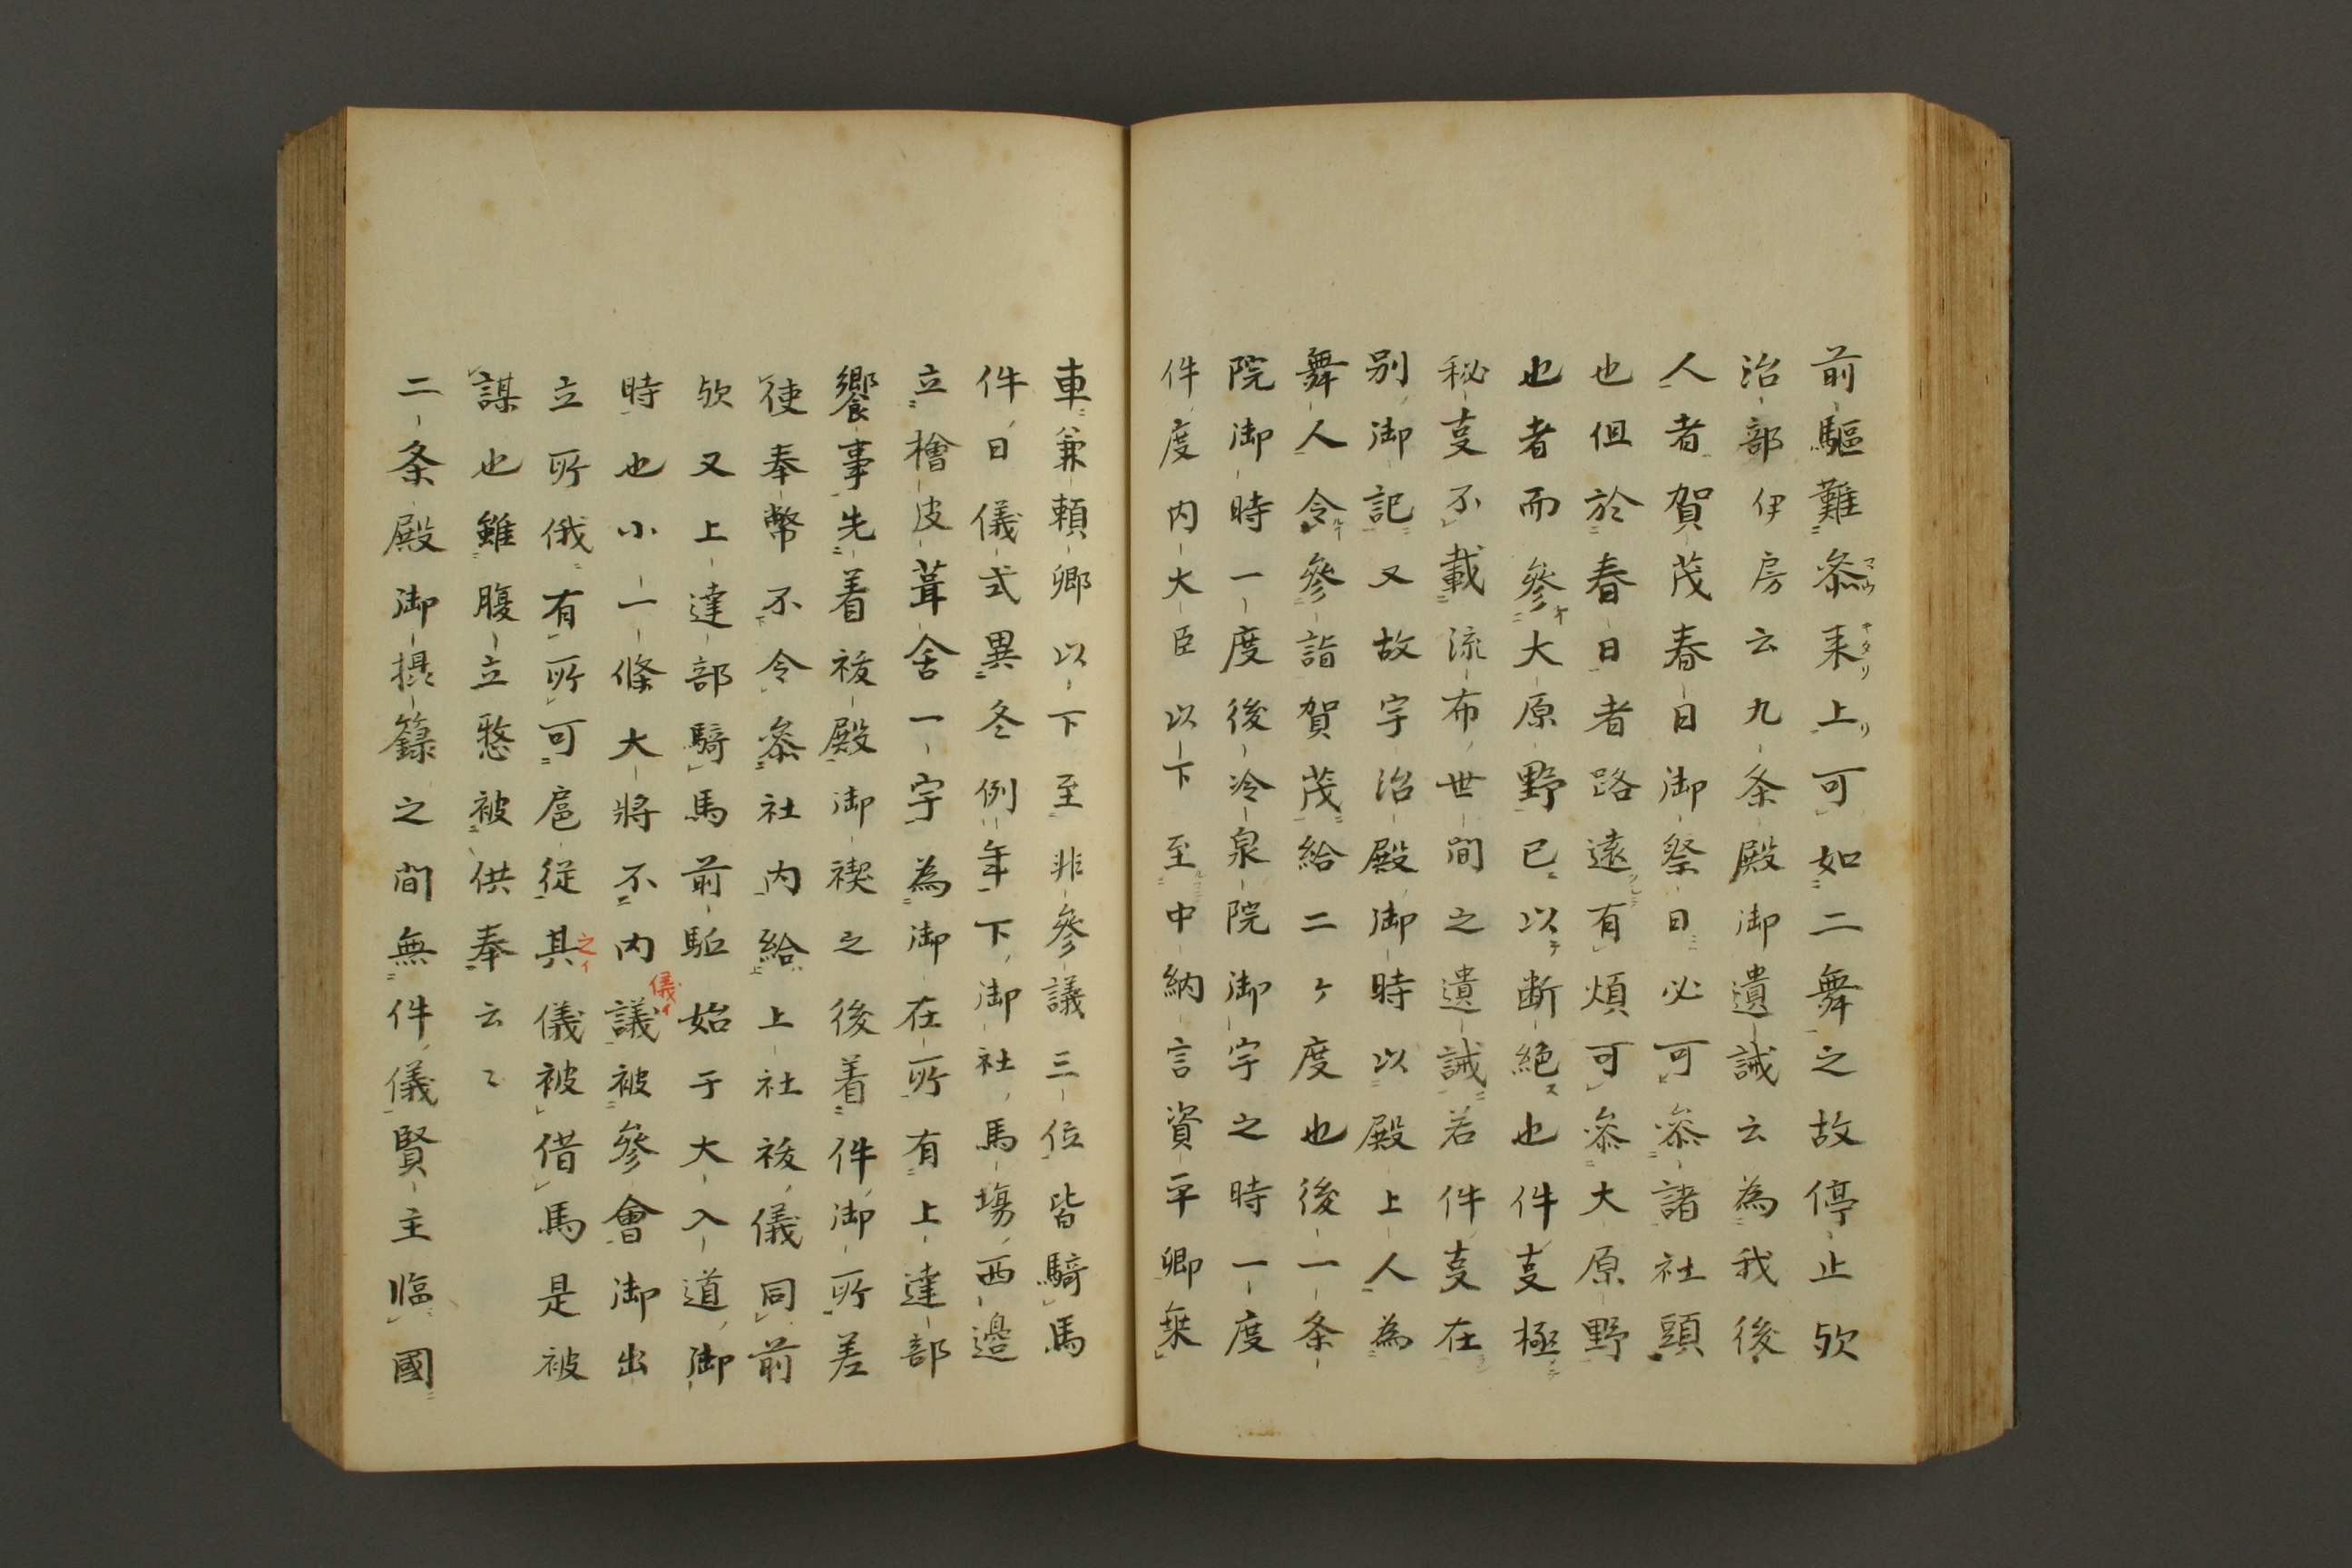 前驅難叅来上可如二舞之故停止欤
治部伊房云九条殿御遺誡云為我後
人者賀茂春日御祭日必可叅諸社頭
也但於春日者路遠有煩可叅大原野
也者而參大原野已以断絶也件㕝極
秘㕝不載流布世間之遺誡若件㕝在
别御記又故宇治殿御時以殿上人為
舞人令參詣賀茂給二ヶ度也後一条
院御時一度後冷泉院御宇之時一度
件度内大臣以下至中納言資平卿乗
車兼頼卿以下至非參議三位皆騎馬
件日儀式異冬例年下御社馬塲西邊
立檜皮葺舍一宇為御在所有上達部
饗事先着祓殿御禊之後着件御所差
使奉幣不令叅社内給上社祓儀同前
欤又上達部騎馬前駈始于大入道御
時也小一條大将不内議被參會御出
立所俄有所可扈従其儀被借馬是被
謀也雖腹立憖被供奉云々
二条殿御摂籙之間無件儀賢主臨國